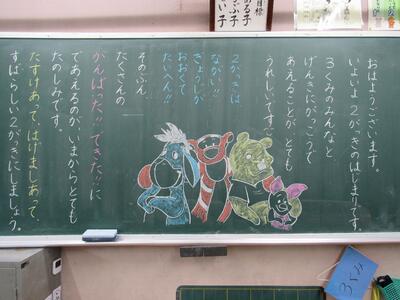 目標
ある子
ぶ子
いい子
おはようございます。
いよいよ2がっきのはじまりです。
3くみのみんなと
げんきにがっこうで
あえることが、とても
うれしいです♡
2がっきは
ながい!!
ぎょうじが
おおくて
たいへん!!
そのぶん、
たくさんの
「がんばった!!できた!!」に
であえるのが、いまからとても
たのしみです。
たすけあって、はげましあって、
すばらしい2がっきにしましょう。
3くみ